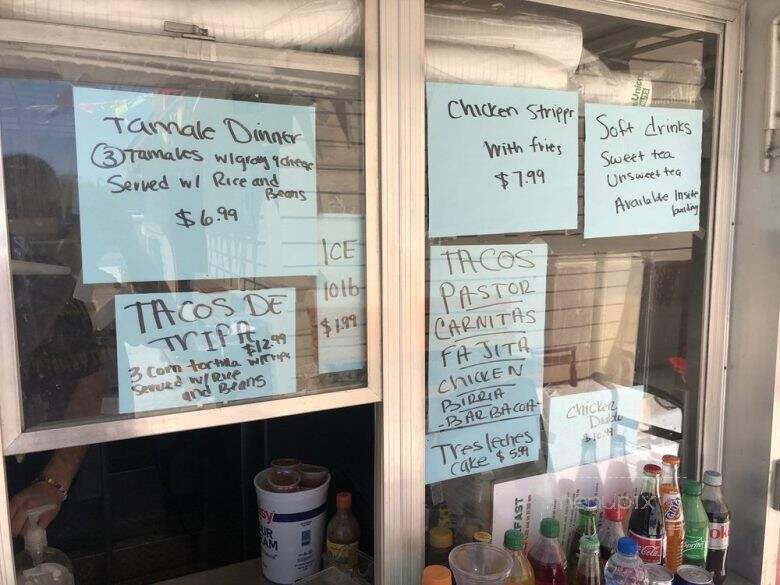 Tamale Dinner
③ Tamales w/gravy & cheese
Served w/ Rice and
Beans
$6.99
ICE
10lb
$1.99
TACOS DE
TRIPA
$12.99
3 corn tortilla w/Tripe
Served w/ Rice
and Beans
Chicken Stripps
With fries
$7.99
Soft drinks
Sweet tea
Unsweet tea
Available Inside
building
TACOS
PASTOR
CARNITAS
FAJITA
CHICKEN
BIRRIA
-BARBACOA-
Tres leches
cake $5.99
Chicken
Diablo
menupix
Coca-Cola
Fanta
Sprite